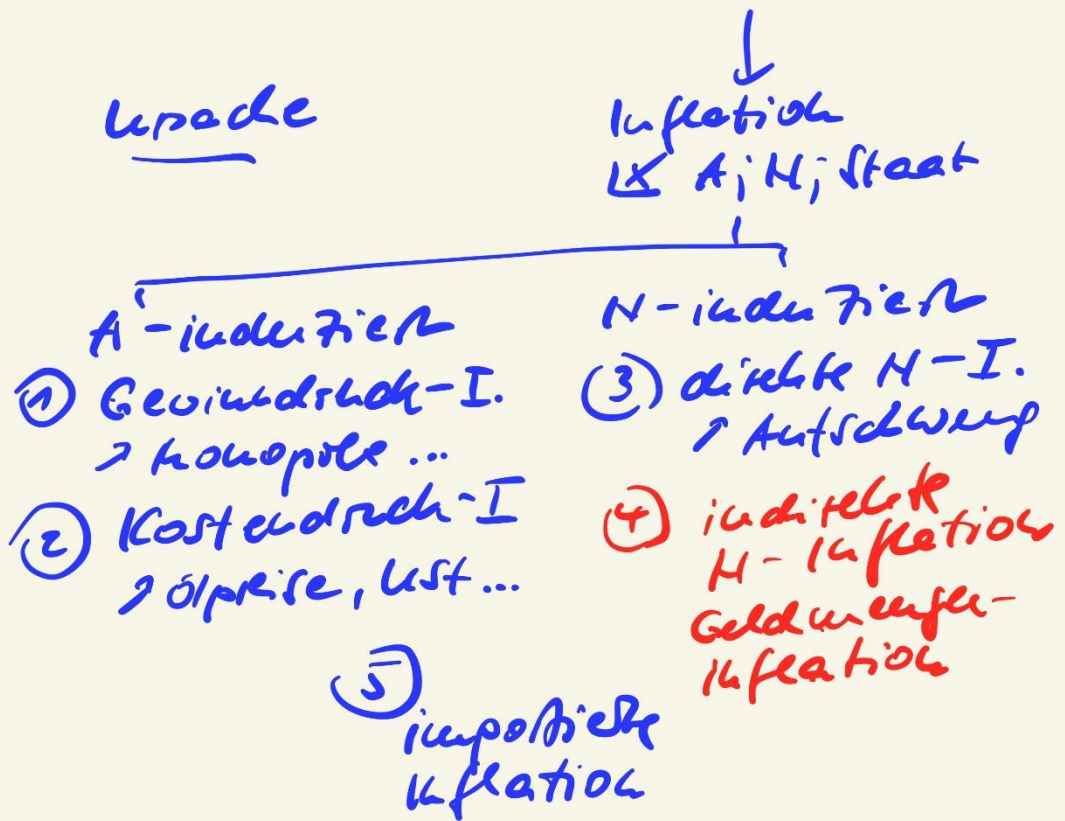 Ursache
Inflation
A; N; Staat
A-induziert
① Gewinndruck-I.
↗ Monopole ...
② Kostendruck-I
↗ Ölpreise, USt ...
N-induziert
③ direkte N-I.
↗ Aufschwung
④ indirekte
N-Inflation
Geldmengen-
inflation
⑤
importierte
Inflation